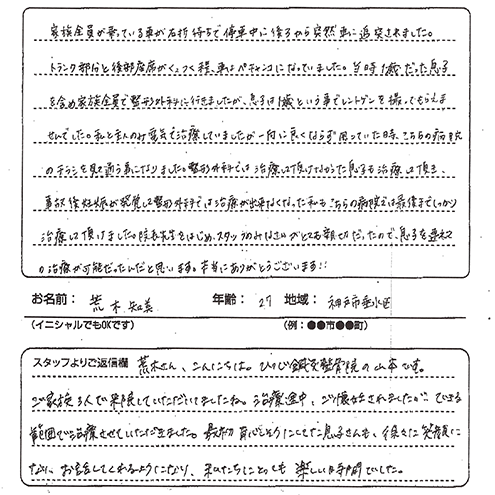 家族全員が乗っている車が右折待ちで停車中に後ろから突然車に追突されました。
トランク部分と後部座席がくっつく程、車はペチャンコになっていました。当時1歳だった息子
を含め家族全員で整形外科に行きましたが、息子は1歳という事でレントゲンを撮ってもらえま
せんでした。私と主人のみ電気で治療していましたが一向に良くならず困っていた時、こちらの病院
のチラシを見て通う事になりました。整形外科では治療して頂けなかった息子も治療して頂き、
事故後妊娠が発覚して整形外科では治療が出来なくなった私も、こちらの病院では最後までしっかり
治療して頂けました。院長先生をはじめ、スタッフのみなさんがとても親切だったので、息子を連れて
の治療が可能だったんだと思います。本当にありがとうございます!!
お名前: 荒木 知美 年齢: 27 地域: 神戸市垂水区
(イニシャルでもOKです) (例:●●市●●町)
スタッフよりご返信欄 荒木さん、こんにちは。ひらじ鍼灸整骨院の山本です。
ご家族3人で来院していただいてましたね。治療途中、ご懐妊されましたが、できる
範囲で治療させていただきました。最初、泣きそうにしてた息子さんも、徐々に笑顔に
なり、お話してくれるようになり、私たちにとっても楽しい時間でした。